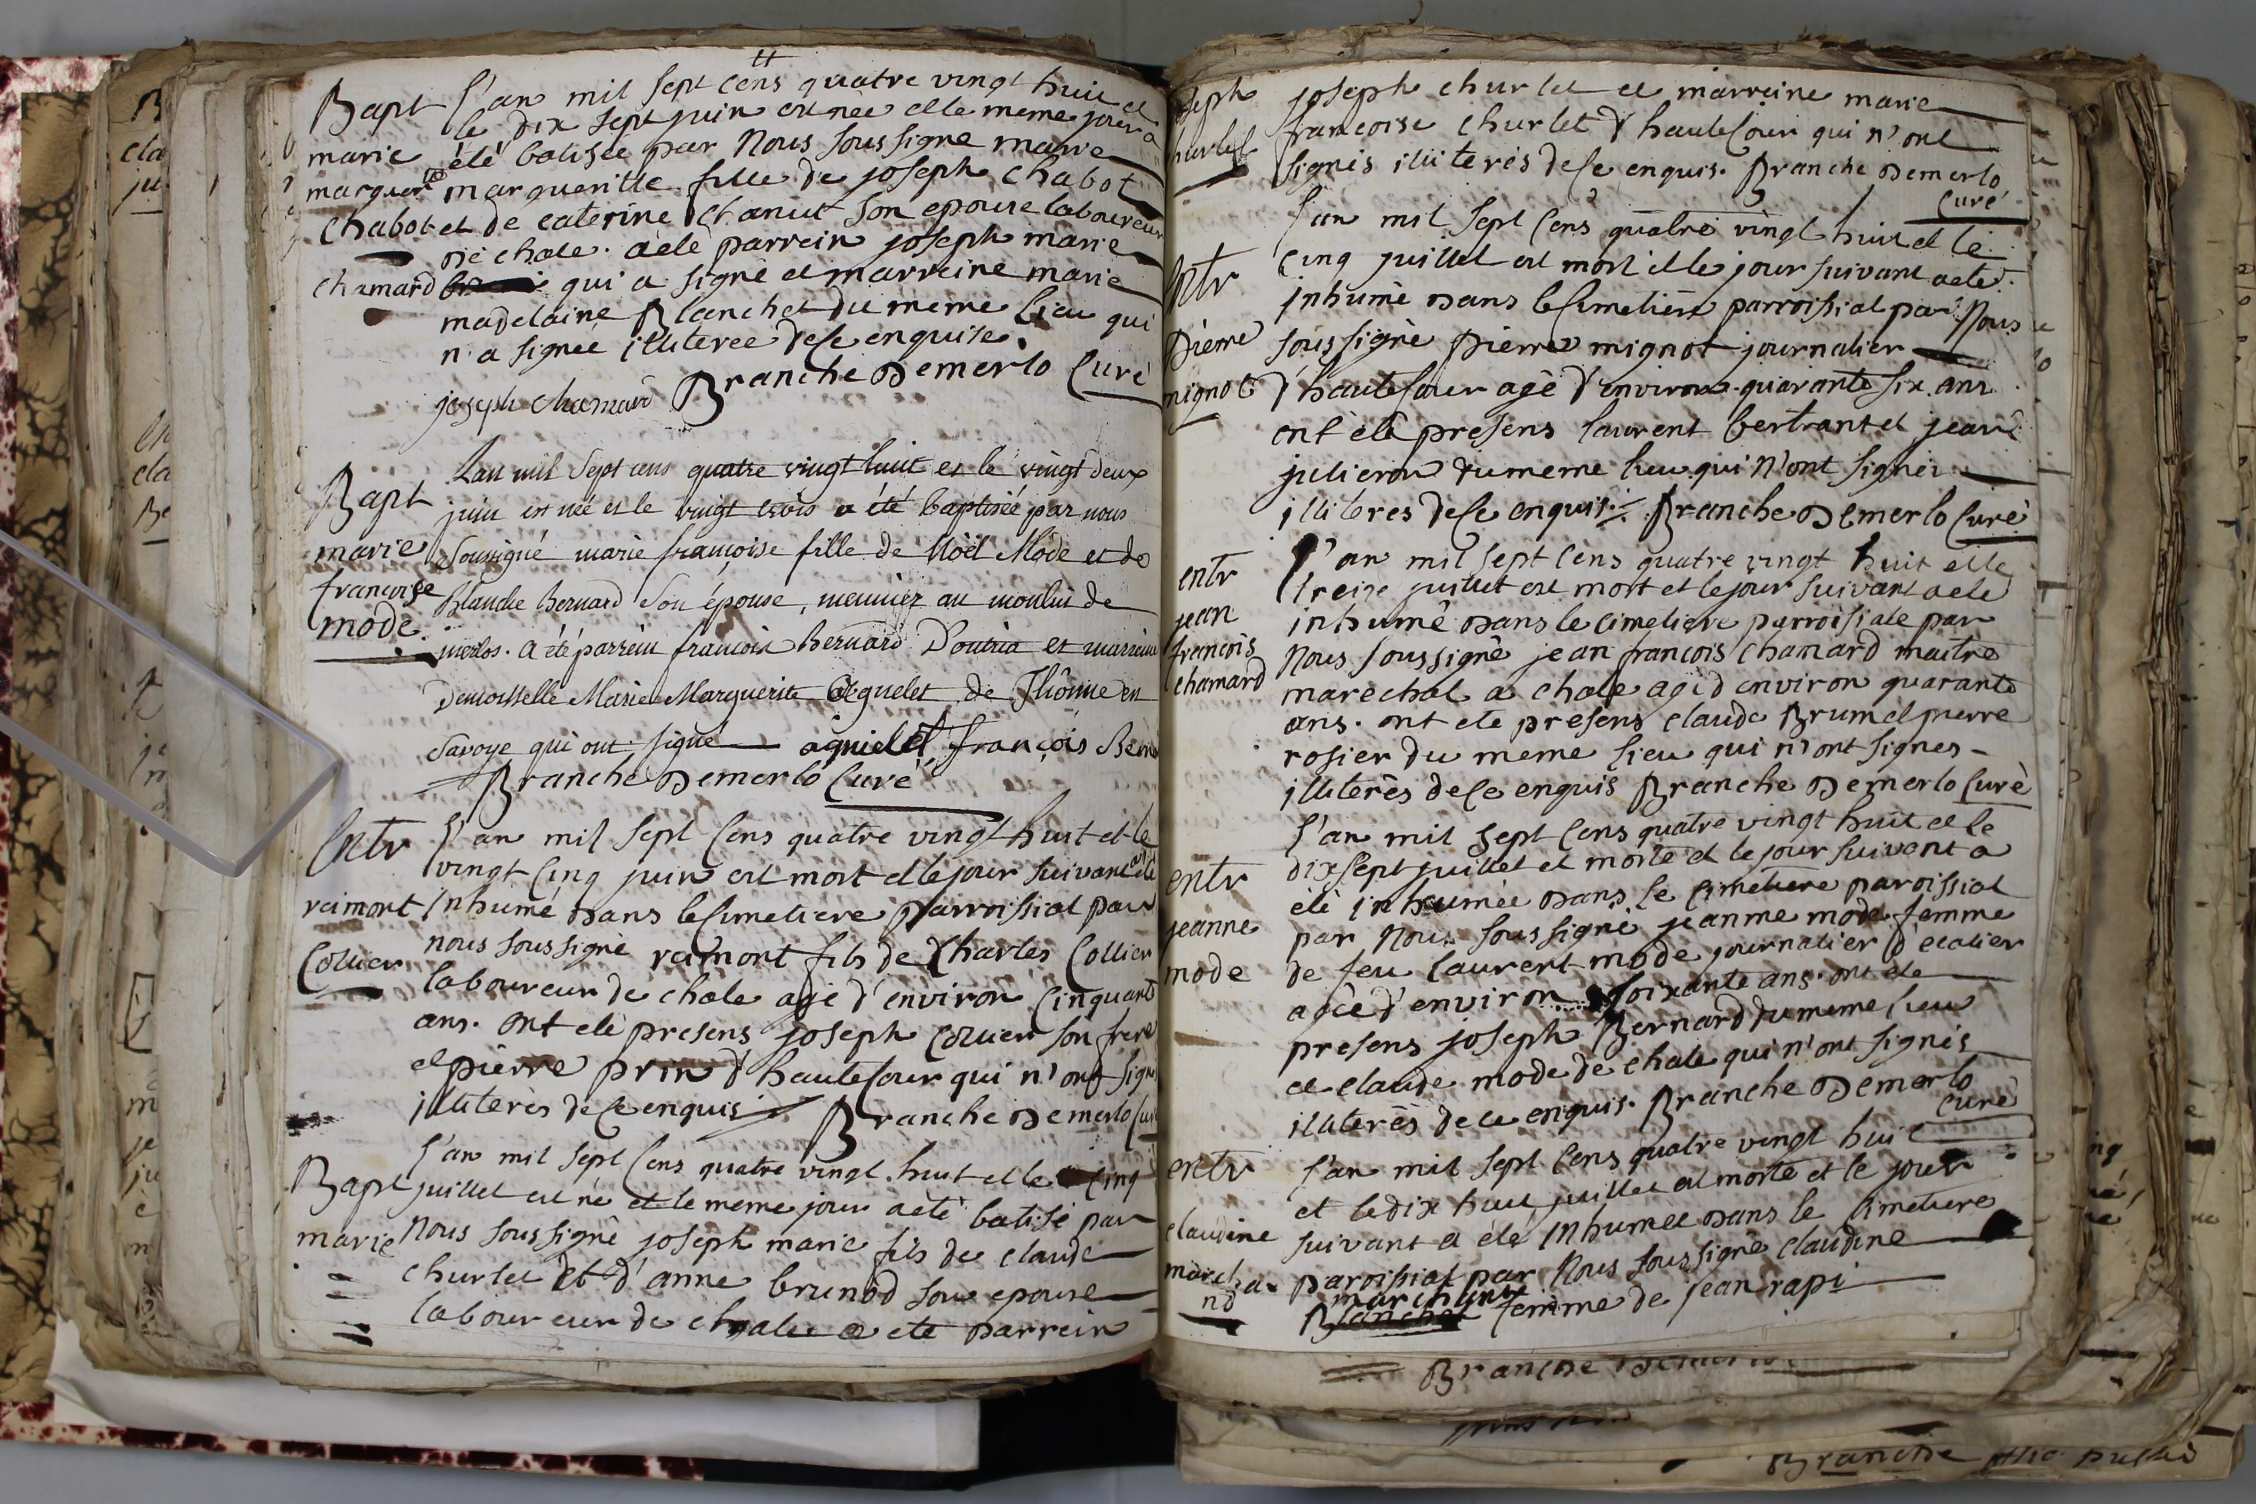 Bapt
marie
marguerite
Chabot
chamard
L'an mil sept cens quatre vingt huit et
le dix sept juin est née et le meme jour a
été batisée par Nous soussigne marie
marguerite fille de joseph Chabot
et de caterine Chanut son epouse laboureur
de chale. a ete parrein joseph marie
qui a signé et marreine marie
madelaine Blanchet du meme lieu qui
n'a signée illiteree de ce enquise.
joseph chamard Branche Demerlo Curé
Bapt
marie
francoise
mode
Lan mil sept cens quatre vingt huit et le vingt deux
juin est née et le vingt trois a été baptisée par nous
soussigné marie françoise fille de Noël Mode et de
Blanche Bernard son épouse, meunier au moulin de
merlos. a été parrein françois Bernard D'ouria et marreine
Demoisselle Marie Marguerite de Thônne en
Savoye qui ont signé françois Bern
Branche Demerlo Curé
Entr
raimont
Collier
L'an mil sept cens quatre vingt huit et le
vingt cinq juin est mort et le jour suivant a été
inhumé dans le cimetiere parroissial par
nous soussigné raimont fils de Charles Collier
laboureur de chale agé d'environ cinquante
ans. ont eté presens joseph Collier son frere
et pierre prin d'hautecour qui n'ont signé
illiterés de ce enquis Branche Demerlo Cur
Bapt
marie
L'an mil sept cens quatre vingt huit et le cinq
juillet est né et le meme jour a eté batisé par
Nous soussigné joseph marie fils de claude
churlet et d'anne brunod son epouse
laboureur de chale a ete parrein
joseph
churlet
joseph churlet et marreine marie
francoise churlet d'hautecour qui n'ont
signés illiterés de ce enquis. Branche Demerlo
Curé
Entr
Pierre
mignot
L'an mil sept cens quatre vingt huit et le
cinq juillet est mort et le jour suivant a eté
inhumé dans le cimetiere parroissial par Nous
soussigné Pierre mignot journalier
d'hautecour agé d'environ quarante six ans
ont été presens laurent bertrant et jean
julieron du meme lieu qui n'ont signés
illiterés de ce enquis Branche Demerlo Curé
entr
jean
francois
chamard
L'an mil sept cens quatre vingt huit et le
treize juillet est mort et le jour suivant a eté
inhumé dans le cimetiere parroissiale par
Nous soussigné jean françois chamard maitre
marechal a chale agé d'environ quarante
ans. ont eté presens claude Brum et pierre
rosier du meme lieu qui n'ont signes
illiterés de ce enquis Branche Demerlo Curé
entr
jeanne
mode
L'an mil sept cens quatre vingt huit et le
dix sept juillet est morte et le jour suivant a
été inhumée dans le cimetiere paroissial
par Nous soussigné jeanne mode femme
de feu laurent mode journalier d'ecalier
agée d'environ soixante ans. ont eté
presens joseph Bernard du meme lieu
et claude mode de chale qui n'ont signés
illiterés de ce enquis. Branche Demerlo
Curé
entr
claudine
marcha
nd
L'an mil sept cens quatre vingt huit
et le dix huit juillet est morte et le jour
suivant a été inhumée dans le cimetiere
paroissial par Nous soussigné claudine
marchand
Blanchet femme de jean rapi
Branche Demerlo
Branche